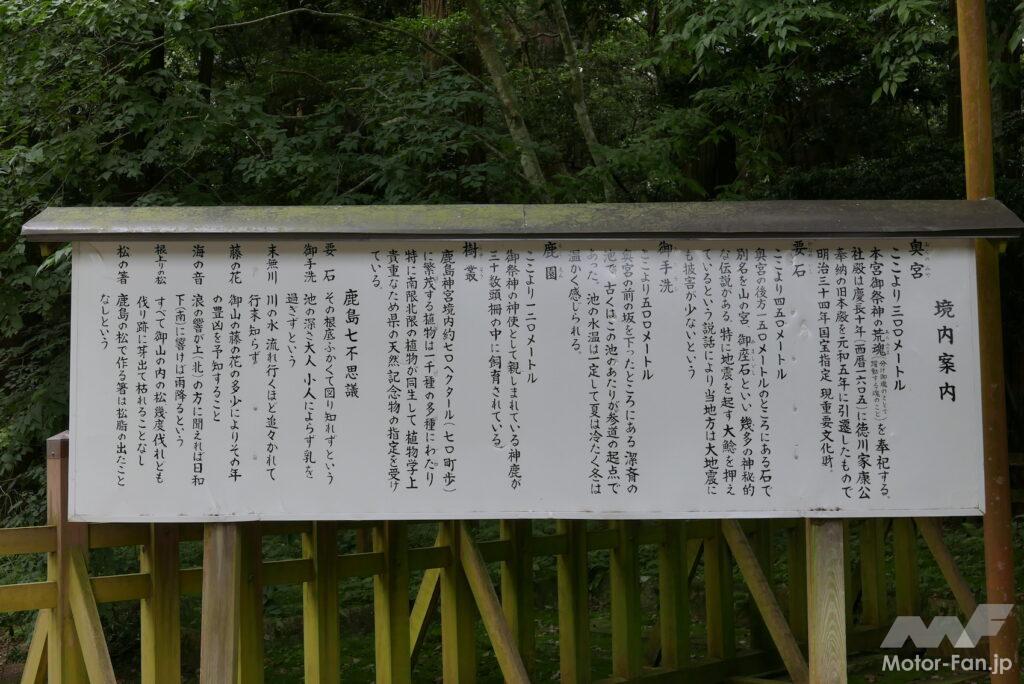 境内案内
奥宮
ここより三〇〇メートル
本宮御祭神の荒魂を奉祀する。
社殿は慶長十年(西暦一六〇五)に徳川家康公
奉納の旧本殿を元和五年に引遷したもので
明治三十四年国宝指定 現重要文化財。
要石
ここより四五〇メートル
奥宮の後方一五〇メートルのところにある石で
別名を山の宮、御座石といい幾多の神秘的
な伝説がある。特に地震を起す大鯰を押え
ているという説話により当地方は大地震に
も被害が少ないという
御手洗
ここより五〇〇メートル
奥宮の前の坂を下ったところにある 潔斎の
池で 古くはこの池のあたりが参道の起点で
あった。池の水温は一定して夏は冷たく冬は
温かく感じられる。
鹿園
ここより一二〇メートル
御祭神の神使として親しまれている神鹿が
三十数頭柵の中に飼育されている。
樹叢
鹿島神宮境内約七〇ヘクタール(七〇町歩)
に繁茂する植物は一千種の多種にわたり
特に南限北限の植物が同生して 植物学上
貴重なため県の天然記念物の指定を受け
ている。
鹿島七不思議
要石 その根底ふかくて図り知れずという
御手洗 池の深さ大人 小人によらず乳を
過ぎずという
末無川 川の水 流れ行くほど追々かれて
行末 知らず
藤の花 御山の藤の花の多少によりその年
の豊凶を予知すること
海の音 浪の響が上(北)の方に聞えれば日和
下(南)に響けば雨降るという
根上りの松 すべて御山の内の松幾度伐れども
伐り跡に芽出て枯れることなし
松の箸 鹿島の松で作る箸は松脂の出たこと
なしという
MF
Motor-Fan.jp